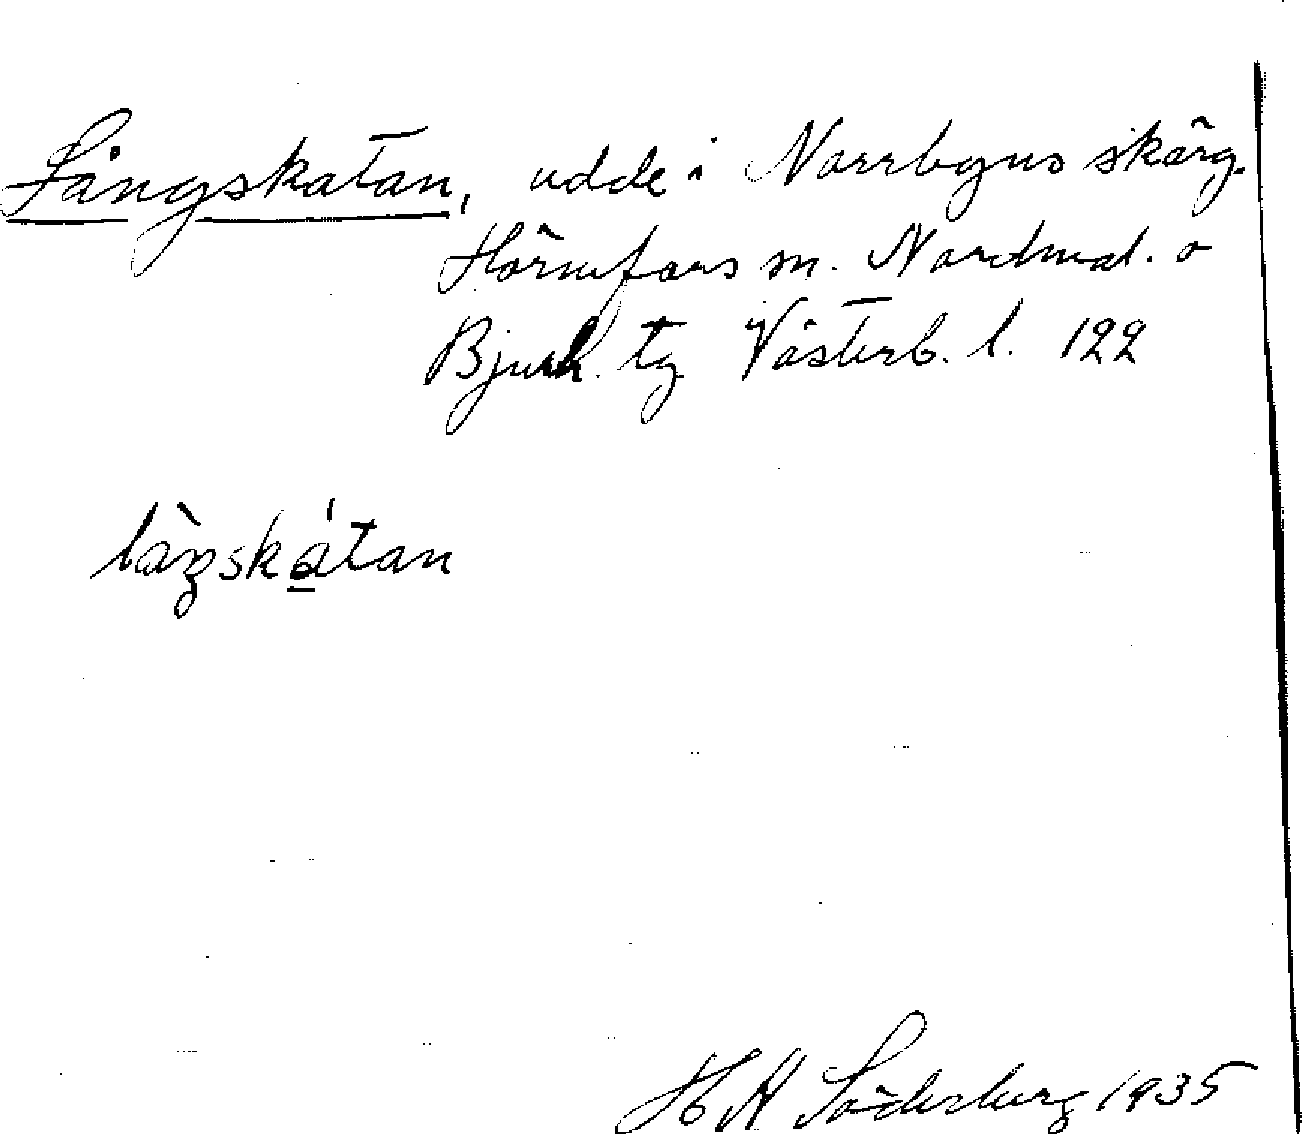 Långskatan, udde i Norrbyns skärg.
Hörnefors sn. Nordmal. o
Bjurh. tg Västerb. l. 122
làŋskátan
H A Söderberg 1935